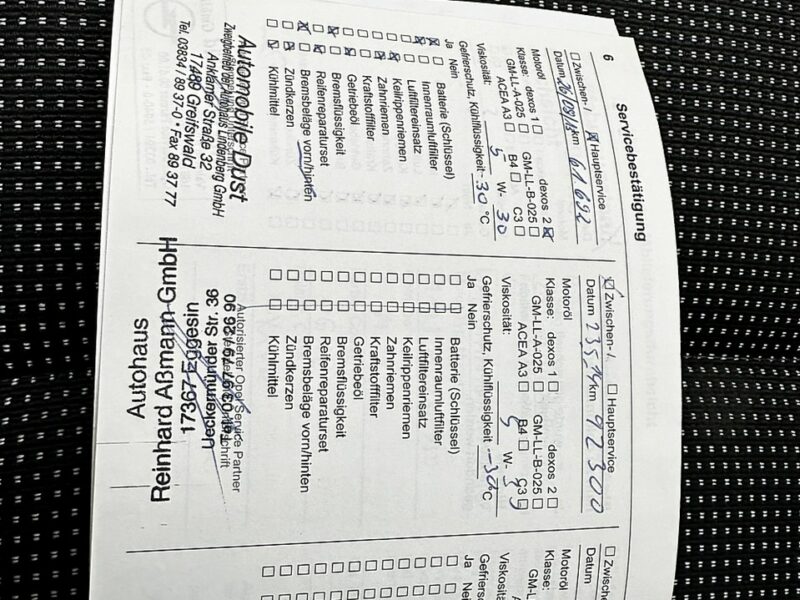 6
Servicebestätigung
Zwischen- / Hauptservice
Datum km 61 692
Motoröl
Klasse: dexos 1 dexos 2
GM-LL-A-025 GM-LL-B-025
ACEA A3 B4 C3
Viskosität: 5 W- 30
Gefrierschutz, Kühlflüssigkeit -30 °C
Ja Nein
Batterie (Schlüssel)
Innenraumluftfilter
Luftfiltereinsatz
Keilrippenriemen
Zahnriemen
Kraftstofffilter
Getriebeöl
Bremsflüssigkeit
Reifenreparaturset
Bremsbeläge vorn/hinten
Zündkerzen
Kühlmittel
Automobile Dust
Zweigbetrieb der Autohaus Lindenberg GmbH
Anklamer Straße 32
17489 Greifswald
Tel. 03834 / 89 37-0 • Fax 89 37 77
Zwischen- / Hauptservice
Datum 23.5.14 km 92300
Motoröl
Klasse: dexos 1 dexos 2
GM-LL-A-025 GM-LL-B-025
ACEA A3 B4 C3
Viskosität: 5 W-
Gefrierschutz, Kühlflüssigkeit -30 °C
Ja Nein
Batterie (Schlüssel)
Innenraumluftfilter
Luftfiltereinsatz
Keilrippenriemen
Zahnriemen
Kraftstofffilter
Getriebeöl
Bremsflüssigkeit
Reifenreparaturset
Bremsbeläge vorn/hinten
Zündkerzen
Kühlmittel
Autorisierter Opel Service Partner
Autohaus
Reinhard Aßmann GmbH
17367 Eggesin
Ueckermünder Str. 36
Zwischen-
Datum
Motoröl
Klasse:
GM-L
Viskosität:
Gefriersch
Ja Nein